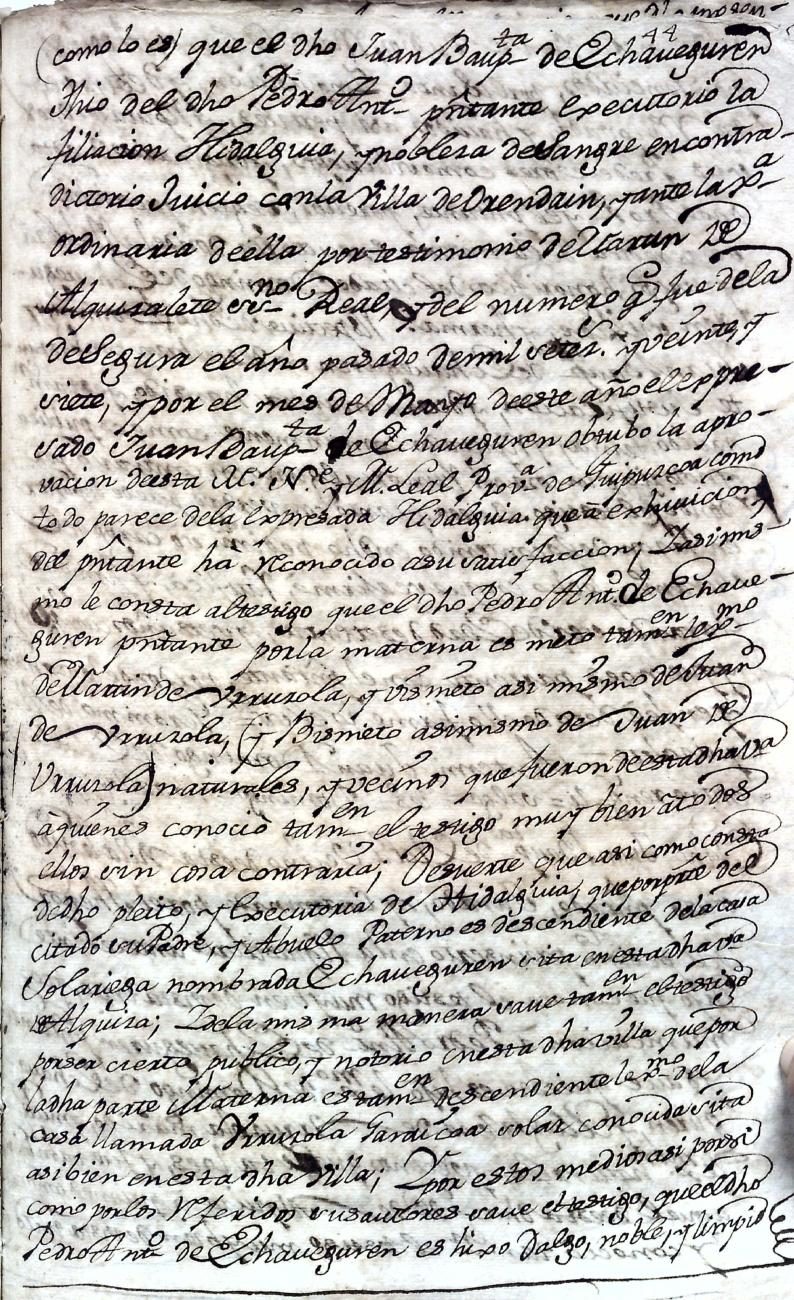 44
(como lo es) que el dho Juan Baupta de Echaveguren
Thio del dho Pedro Anto pñtante executtorio la
filiacion Hidalguia, y nobleza de Sangre en contra-
dictorio Juicio con la Villa de Orendain, y ante la
ordinaria de ella por testimonio de Martin de
Alquizalete esno Real, y del numero q fue de la
de Segura el año pasado de mil seteс. y veinte, y
siete, y por el mes de Mayo de este año el expre-
sado Juan Baupta de Echaveguren obtubo la apro-
vacion de esta M. Ne y M. Leal Prova de Guipuzcoa como
todo parece de la expresada Hidalguia que a exhivicion
del pñtante hà reconocido a su satisfaccion; Y asi mis-
mo le consta al testigo que el dho Pedro Anto de Echave-
guren pñtante por la materna es nieto tamen lexmo
de Martin de Urruzola, y visnieto asi mismo de Juan
de Urruzola, (y Bisnieto asimismo de Juan de
Urruzola) naturales, y vecinos que fueron de esta dha va
à quienes conociò tamen el testigo muy bien à todos
ellos sin cosa contraria; De suerte que asi como consta
de dho pleito, y Executoria de Hidalguia, que por pte del
citado su Padre, y Abuelo Paterno es descendiente de la casa
Solariega nombrada Echaveguren sita en esta dha va
de Alquiza; Y de la misma manera save tamen el testigo
por ser cierto publico, y notorio en esta dha villa que por
la dha parte Materna es tamen descendiente lexmo de la
casa llamada Urruzola Garaicoa solar conocida sita
asi bien en esta dha Villa; Y por estos medios asi por si
como por los referidos sus autores save el testigo, que el dho
Pedro Anto de Echaveguren es hixo Dalgo, noble, y limpio